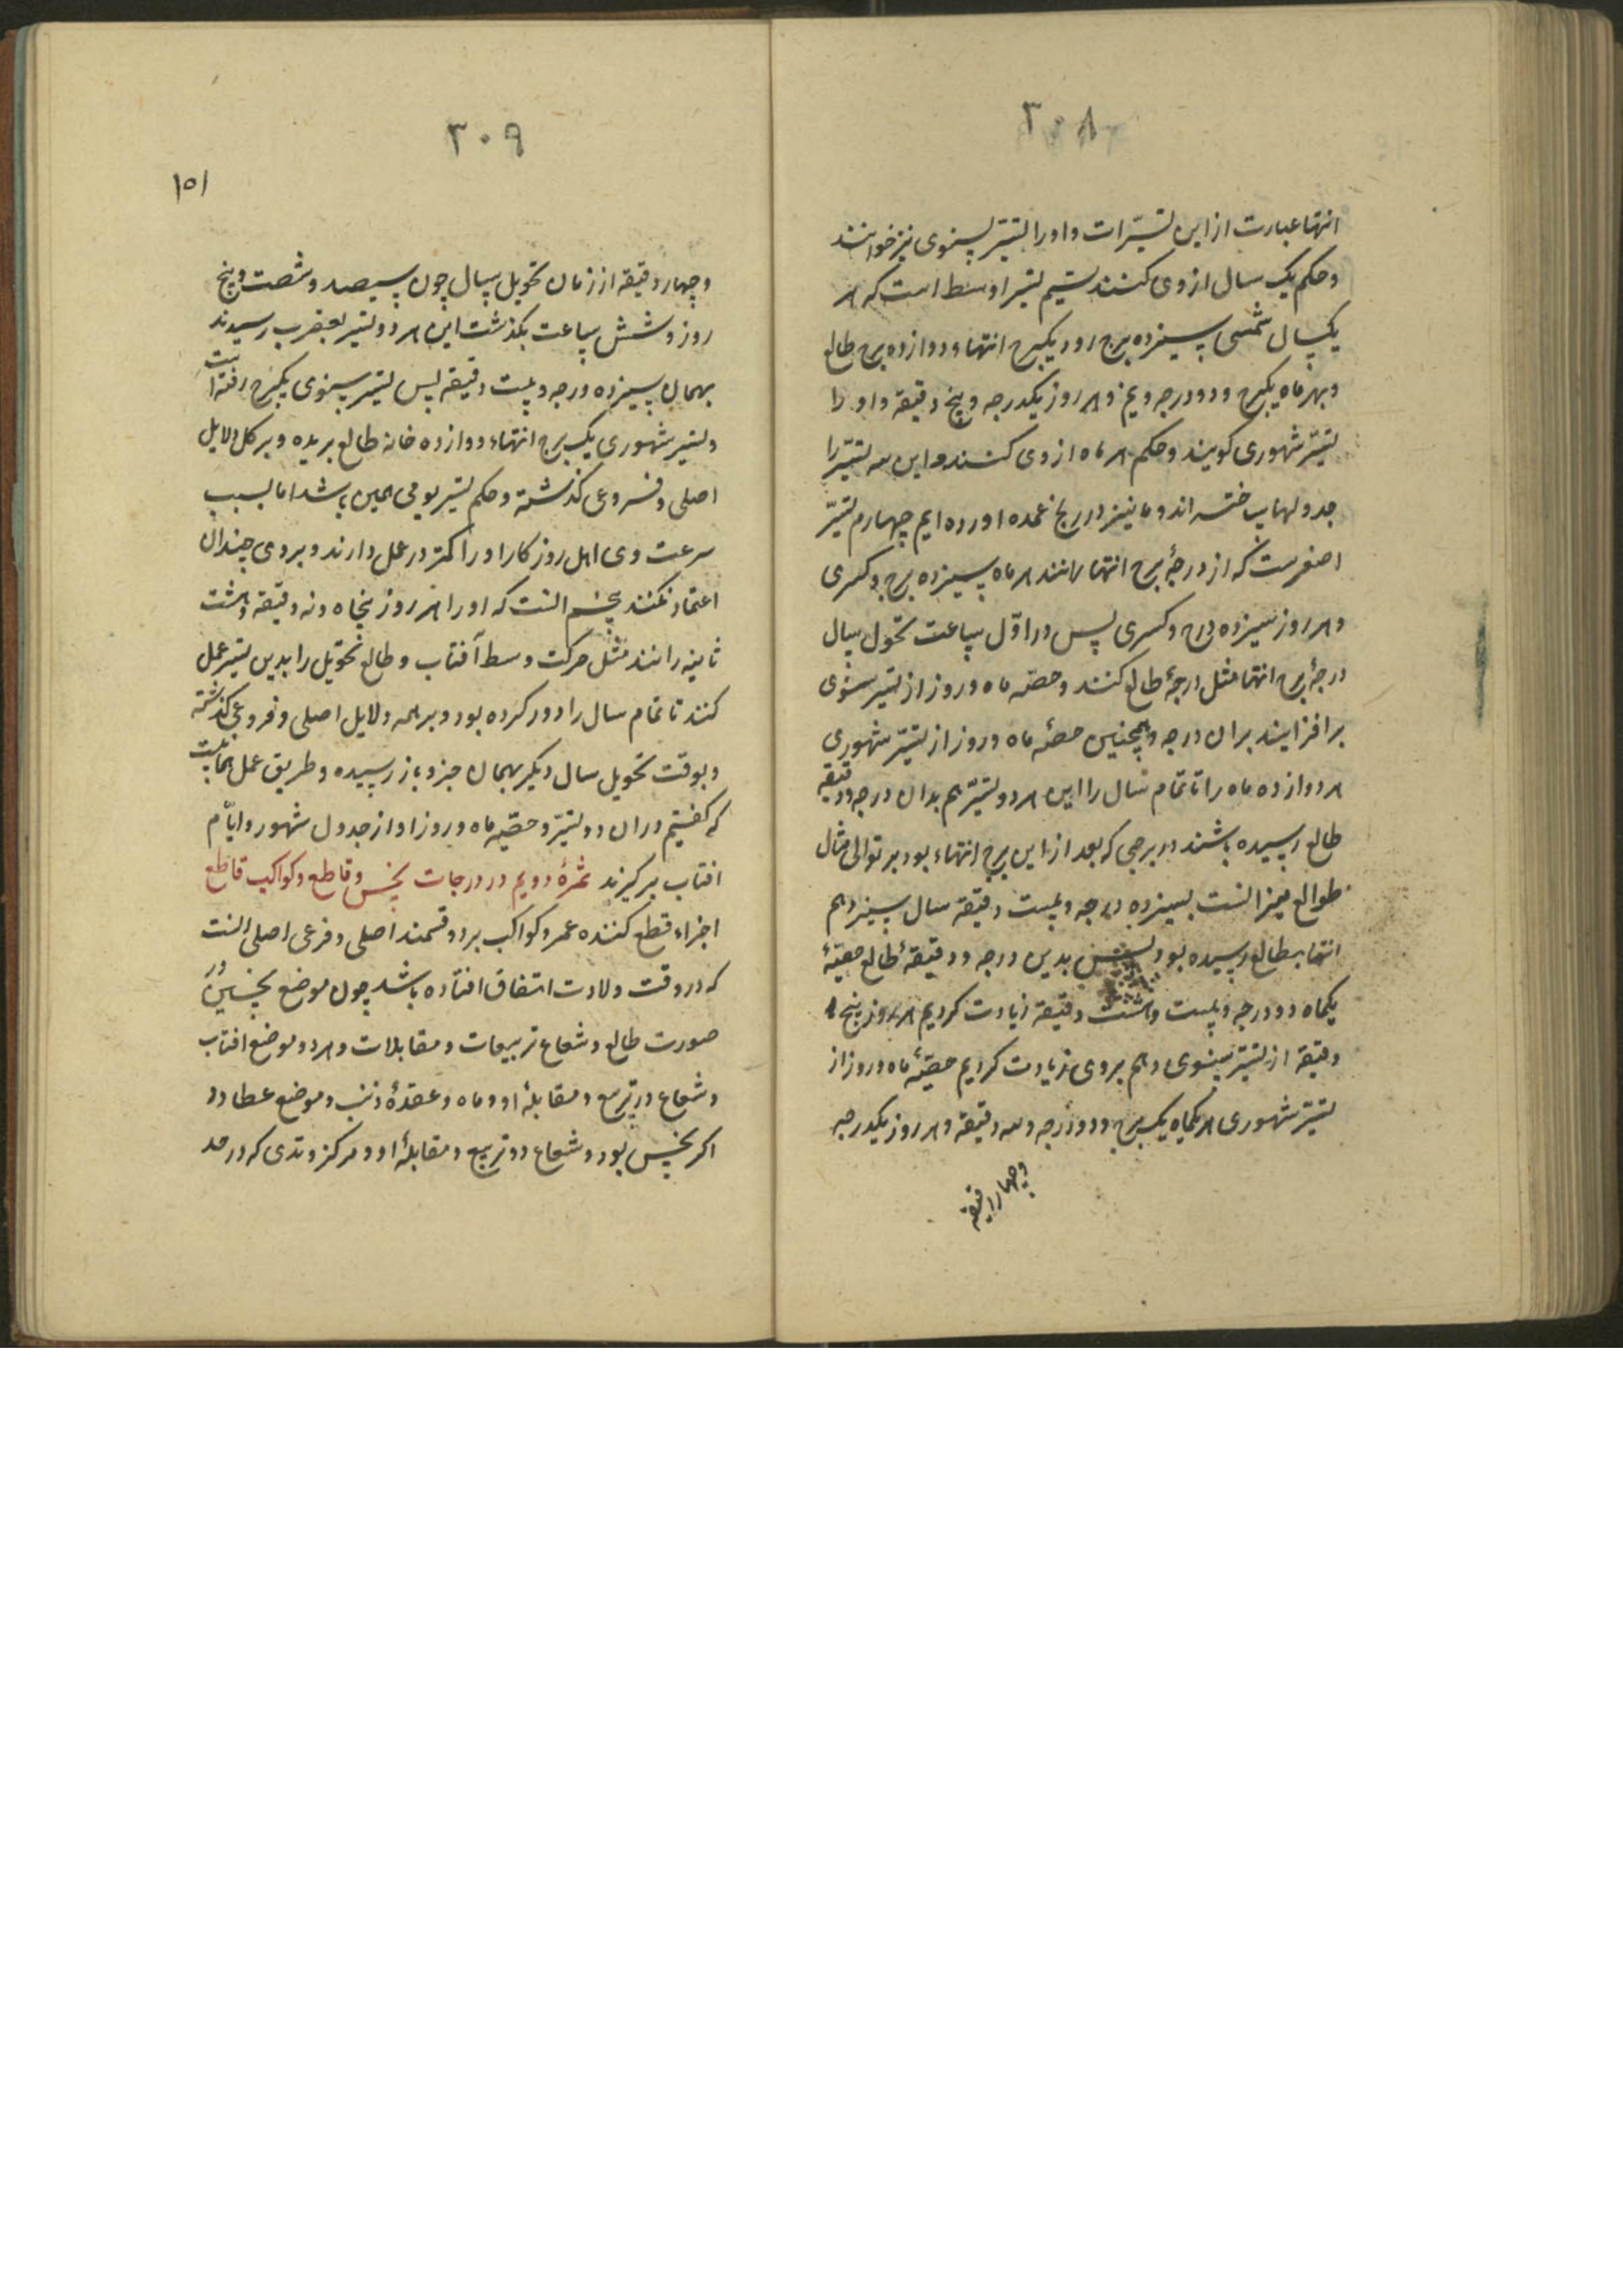 ۳۰۸
انتها عبارت از این تسییرات و او را تسییر سنوی نیز خوانند
و حکم یک سال از وی کنند سیم تسییر اوسط است که هر
یکسال شمسی سیزده برج رود یکبرج انتهاء و دوازده برج طالع
و بهر ماه یکبرج و دو درجه و نیم و هر روز یکدرجه و پنج دقیقه و او را
تسییر شهوری کویند و حکم هر ماه از وی کنند و این سه تسییر را
جدولها ساخته اند و ما نیز در زیج عمده اورده ایم چهارم تسییر
اصغرست که از درجهٔ برج انتها رانند هر ماه سیزده برج و کسری
و هر روز سیزده درج و کسری پس در اوّل ساعت تحول سال
درجهٔ برج انتها مثل درجهٔ طالع کنند و حصّه ماه و روز از تسییر سنوی
برافزایند بران درجه و همچنین حصهٔ ماه و روز از تسییر شهوری
هر دوازده ماه را تا تمام سال را این هر دو تسییر هم بدان درجه و دقیقه
طالع رسیده باشند در برجی که بعد از این برج انتهاء بود بر توالی مثال
طوالع میزانست بسیزده درجه و بیست دقیقه سال سیزدهم
انتها بطالع رسیده بود پس بدین درجه و دقیقهٔ طالع حصّهٔ
یکماه دو درجه و بیست و هشت دقیقه زیادت کردیم هر روز پنج
دقیقه از تسییر سنوی و هم بروی زیادت کردیم حصّهٔ ماه و روز از
تسییر شهوری هر یکماه یک برج و دو درجه و سه دقیقه و هر روز یکدرجه
و چهار دقیقه
۳۰۹
۱۵۱
و چهار دقیقه از زمان تحویل سال چون سیصد و شصت و پنج
روز و شش ساعت بکذشت این هر دو تسییر بعقرب رسیدند
بهمان سیزده درجه و بیست دقیقه پس تسییر سنوی یکبرج رفته است
و تسییر شهوری یک برج انتهاء و دوازده خانه طالع بریده و بر کل دلایل
اصلی و فروعی کذشته و حکم تسییر یومی همین باشد اما بسبب
سرعت وی اهل روزکار او را کمتر در عمل دارند و بروی چندان
اعتماد نکنند پنجم انست که او را هر روز پنجاه و نه دقیقه و هشت
ثانیه رانند مثل حرکت وسط آفتاب و طالع تحویل را بدین تسییر عمل
کنند تا تمام سال را دور کرده بود و بر همه دلایل اصلی و فروعی کذشته
و بوقت تحویل سال دیکر بهمان جزو باز رسیده و طریق عمل همانست
که کفتیم دران دو تسییر و حصّه ماه و روز او از جدول شهور و ایّام
افتاب برکیرند ثمرهٔ دویم در درجات نحس و قاطع و کواکب قاطع
اجزاء قطع کننده عمر و کواکب بر دو قسمند اصلی و فرعی اصلی انست
که در وقت ولادت اتفاق افتاده باشد چون موضع نحسین در
صورت طالع و شعاع تربیعات و مقابلات و هر دو موضع افتاب
و شعاع دو تربیع و مقابلهٔ او و ماه و عقدهٔ ذنب و موضع عطارد
اکر نحس بود و شعاع دو تربیع و مقابلهٔ او و مرکز وتدی که در حد